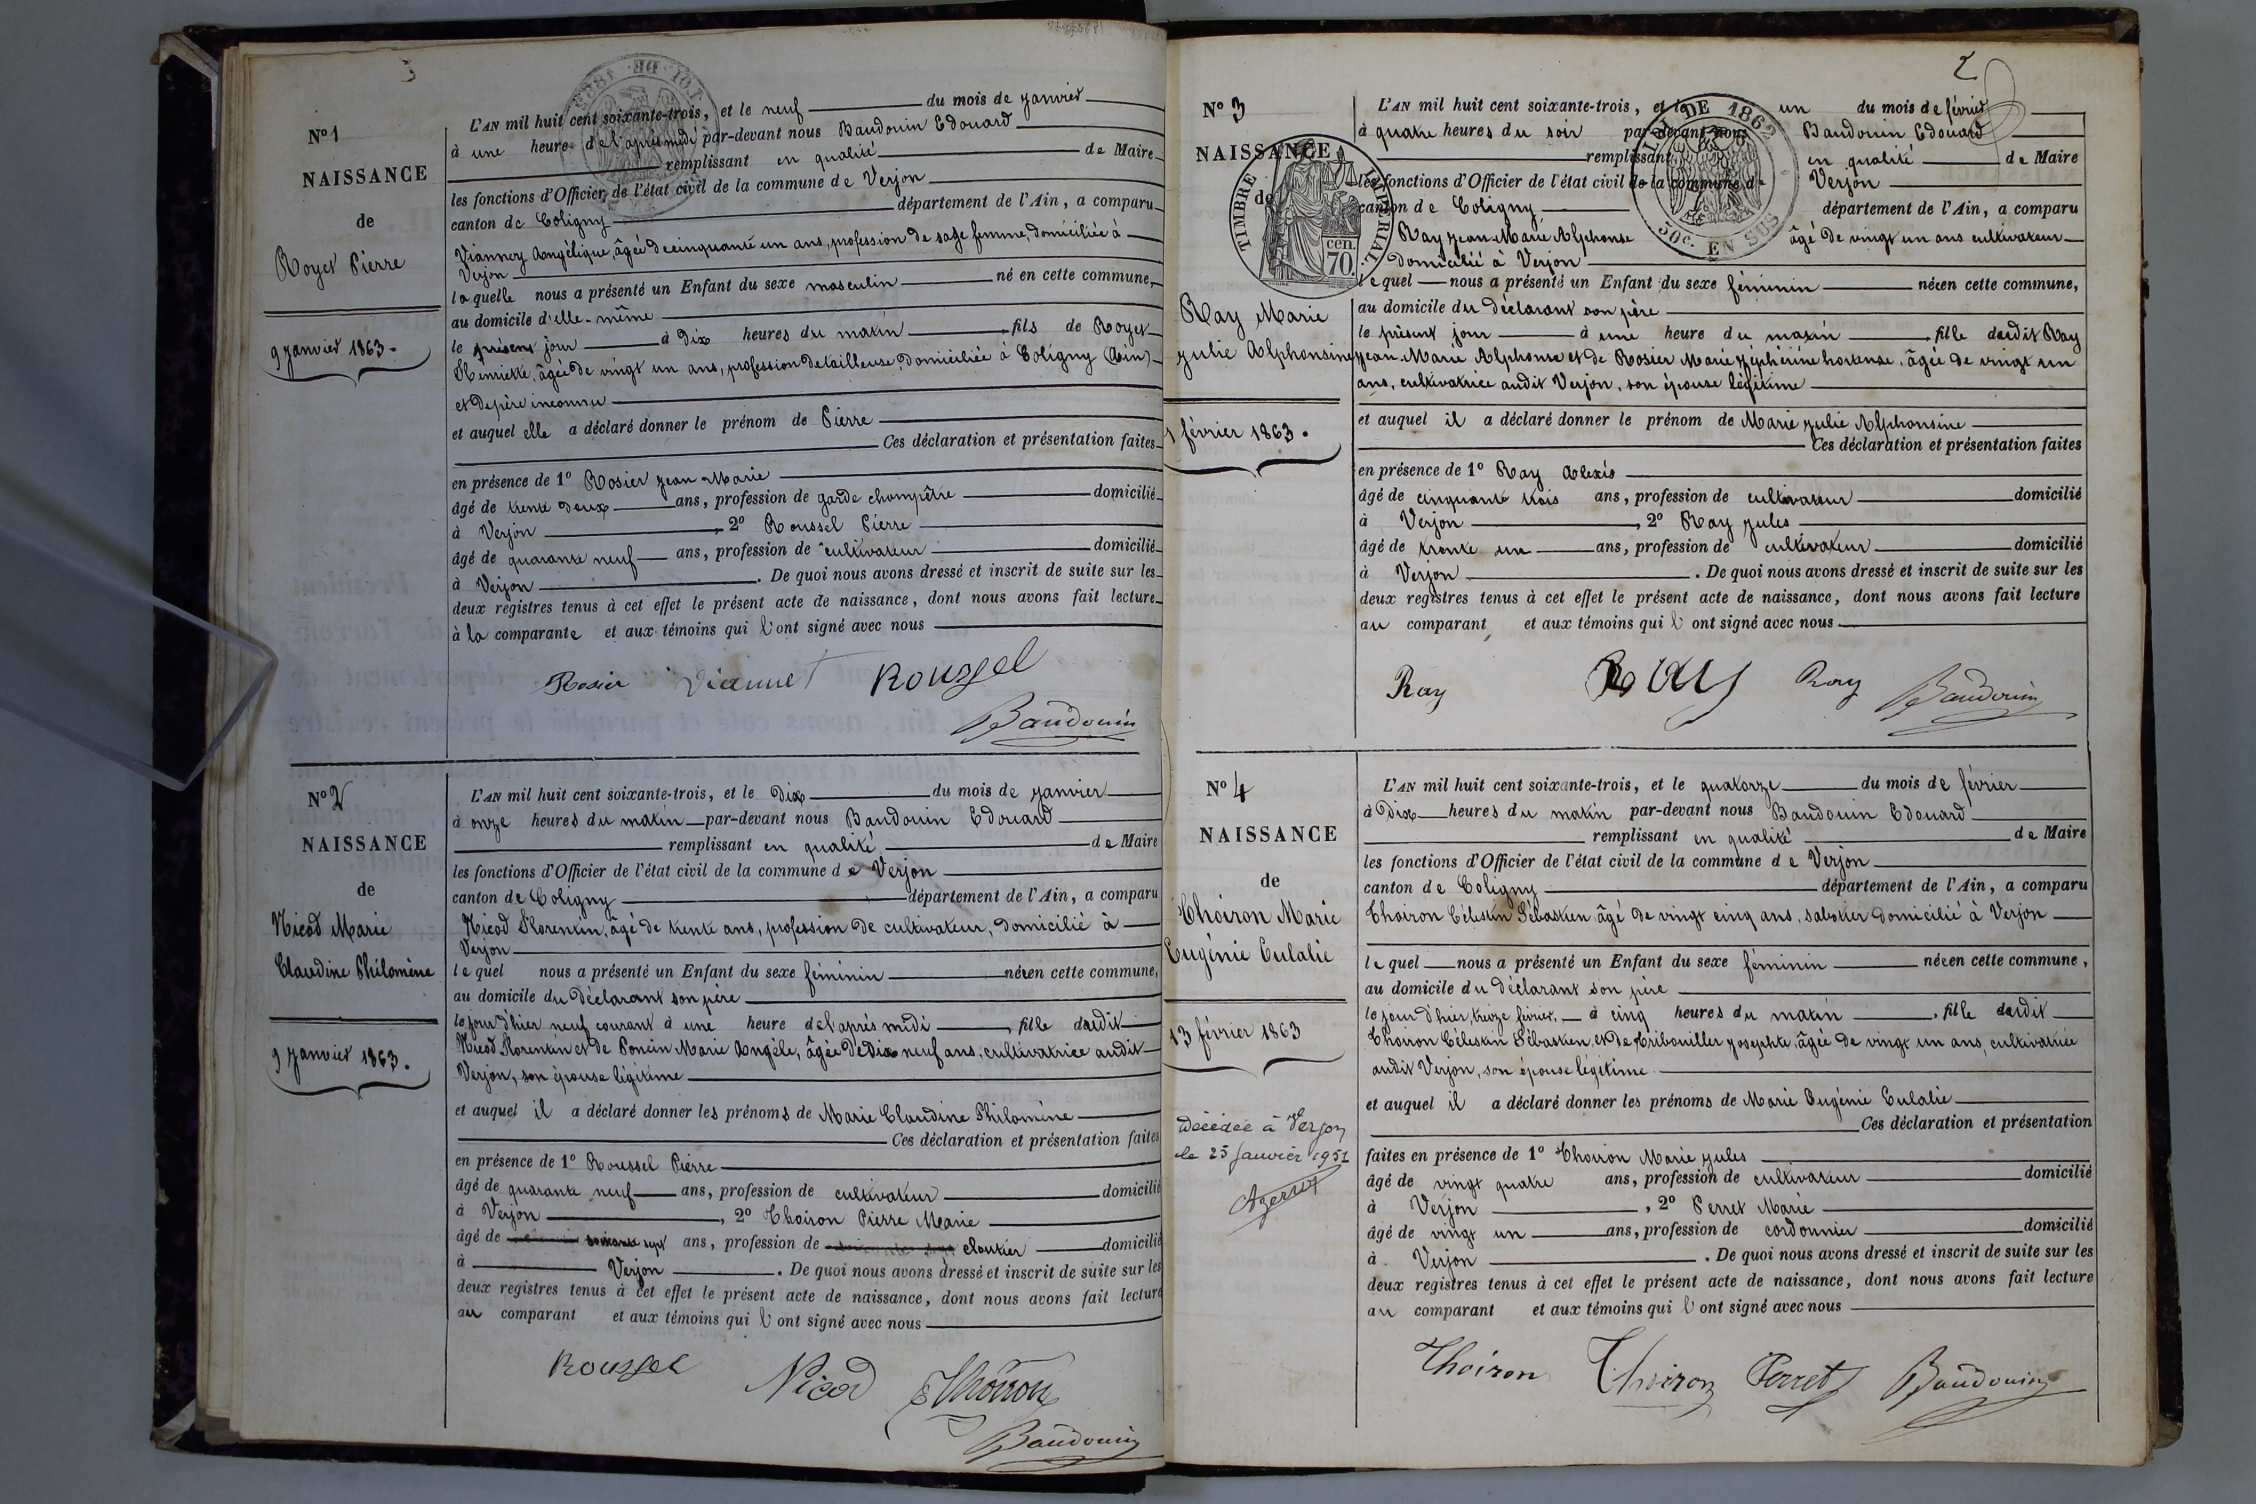 N° 1
NAISSANCE
de
Royet Pierre
9 janvier 1863.
L'AN mil huit cent soixante-trois, et le neuf du mois de janvier
à une heure de l'après midi par-devant nous Baudouin Edouard
remplissant en qualité de Maire
les fonctions d'Officier de l'état civil de la commune de Verjon
canton de Coligny département de l'Ain, a comparu
Vianney Angélique, âgée de cinquante un ans, profession de sage femme, domiciliée à
Verjon
laquelle nous a présenté un Enfant du sexe masculin né en cette commune,
au domicile d'elle-même
le présent jour à dix heures du matin fils de Royet
Henriette, âgée de vingt un ans, profession de tailleuse, domiciliée à Coligny (Ain)
et de père inconnu
et auquel elle a déclaré donner le prénom de Pierre
Ces déclaration et présentation faites
en présence de 1° Rosier Jean-Marie
âgé de trente deux ans, profession de garde champêtre domicilié
à Verjon, 2° Roussel Pierre
âgé de quarante neuf ans, profession de cultivateur domicilié
à Verjon. De quoi nous avons dressé et inscrit de suite sur les
deux registres tenus à cet effet le présent acte de naissance, dont nous avons fait lecture
à la comparante et aux témoins qui l'ont signé avec nous
Rosier Viannet Roussel
Baudouin
N° 2
NAISSANCE
de
Nicod Marie
Claudine Philomène
9 janvier 1863.
L'AN mil huit cent soixante-trois, et le dix du mois de janvier
à onze heures du matin par-devant nous Baudouin Edouard
remplissant en qualité de Maire
les fonctions d'Officier de l'état civil de la commune de Verjon
canton de Coligny département de l'Ain, a comparu
Nicod Florentin, âgé de trente ans, profession de cultivateur, domicilié à
Verjon
lequel nous a présenté un Enfant du sexe féminin née en cette commune,
au domicile du déclarant son père
le jour d'hier neuf courant à une heure de l'après midi, fille dudit
Nicod Florentin et de Poncin Marie Angèle, âgée de dix neuf ans, cultivatrice audit
Verjon, son épouse légitime
et auquel il a déclaré donner les prénoms de Marie Claudine Philomène
Ces déclaration et présentation faites
en présence de 1° Roussel Pierre
âgé de quarante neuf ans, profession de cultivateur domicilié
à Verjon, 2° Thoiron Pierre Marie
âgé de soixante sept ans, profession de cloutier domicilié
à Verjon. De quoi nous avons dressé et inscrit de suite sur les
deux registres tenus à cet effet le présent acte de naissance, dont nous avons fait lecture
au comparant et aux témoins qui l'ont signé avec nous
Roussel Nicod Thoiron
Baudouin
2
N° 3
NAISSANCE
de
TIMBRE IMPERIAL.
70 cen.
LOI DE 1862
50c. EN SUS
Ray Marie
Julie Alphonsine
1 février 1863.
L'AN mil huit cent soixante-trois, et le un du mois de février
à quatre heures du soir par-devant nous Baudouin Edouard
remplissant en qualité de Maire
les fonctions d'Officier de l'état civil de la commune de Verjon
canton de Coligny département de l'Ain, a comparu
Ray Jean-Marie Alphonse âgé de vingt un ans cultivateur
domicilié à Verjon
lequel nous a présenté un Enfant du sexe féminin née en cette commune,
au domicile du déclarant son père
le présent jour à une heure du matin fille dudit Ray
Jean-Marie Alphonse et de Rosier Marie Zéphérine hortense, âgée de vingt un
ans, cultivatrice audit Verjon, son épouse légitime
et auquel il a déclaré donner le prénom de Marie Julie Alphonsine
Ces déclaration et présentation faites
en présence de 1° Ray Alexis
âgé de cinquante trois ans, profession de cultivateur domicilié
à Verjon, 2° Ray Jules
âgé de trente un ans, profession de cultivateur domicilié
à Verjon. De quoi nous avons dressé et inscrit de suite sur les
deux registres tenus à cet effet le présent acte de naissance, dont nous avons fait lecture
au comparant et aux témoins qui l'ont signé avec nous
Ray Ray Ray Baudouin
N° 4
NAISSANCE
de
Thoiron Marie
Eugénie Eulalie
13 février 1863
Décédée à Verjon
le 25 janvier 1951
L'AN mil huit cent soixante-trois, et le quatorze du mois de février
à dix heures du matin par-devant nous Baudouin Edouard
remplissant en qualité de Maire
les fonctions d'Officier de l'état civil de la commune de Verjon
canton de Coligny département de l'Ain, a comparu
Thoiron Célestin Sébastien, âgé de vingt cinq ans, sabotier domicilié à Verjon
lequel nous a présenté un Enfant du sexe féminin née en cette commune,
au domicile du déclarant son père
le jour d'hier, treize février, à cinq heures du matin, fille dudit
Thoiron Célestin Sébastien, et de Tribouiller Josephte, âgée de vingt un ans, cultivatrice
audit Verjon, son épouse légitime
et auquel il a déclaré donner les prénoms de Marie Eugénie Eulalie
Ces déclaration et présentation
faites en présence de 1° Thoiron Marie Jules
âgé de vingt quatre ans, profession de cultivateur domicilié
à Verjon, 2° Perret Marie
âgé de vingt un ans, profession de cordonnier domicilié
à Verjon. De quoi nous avons dressé et inscrit de suite sur les
deux registres tenus à cet effet le présent acte de naissance, dont nous avons fait lecture
au comparant et aux témoins qui l'ont signé avec nous
Thoiron Thoiron Perret Baudouin